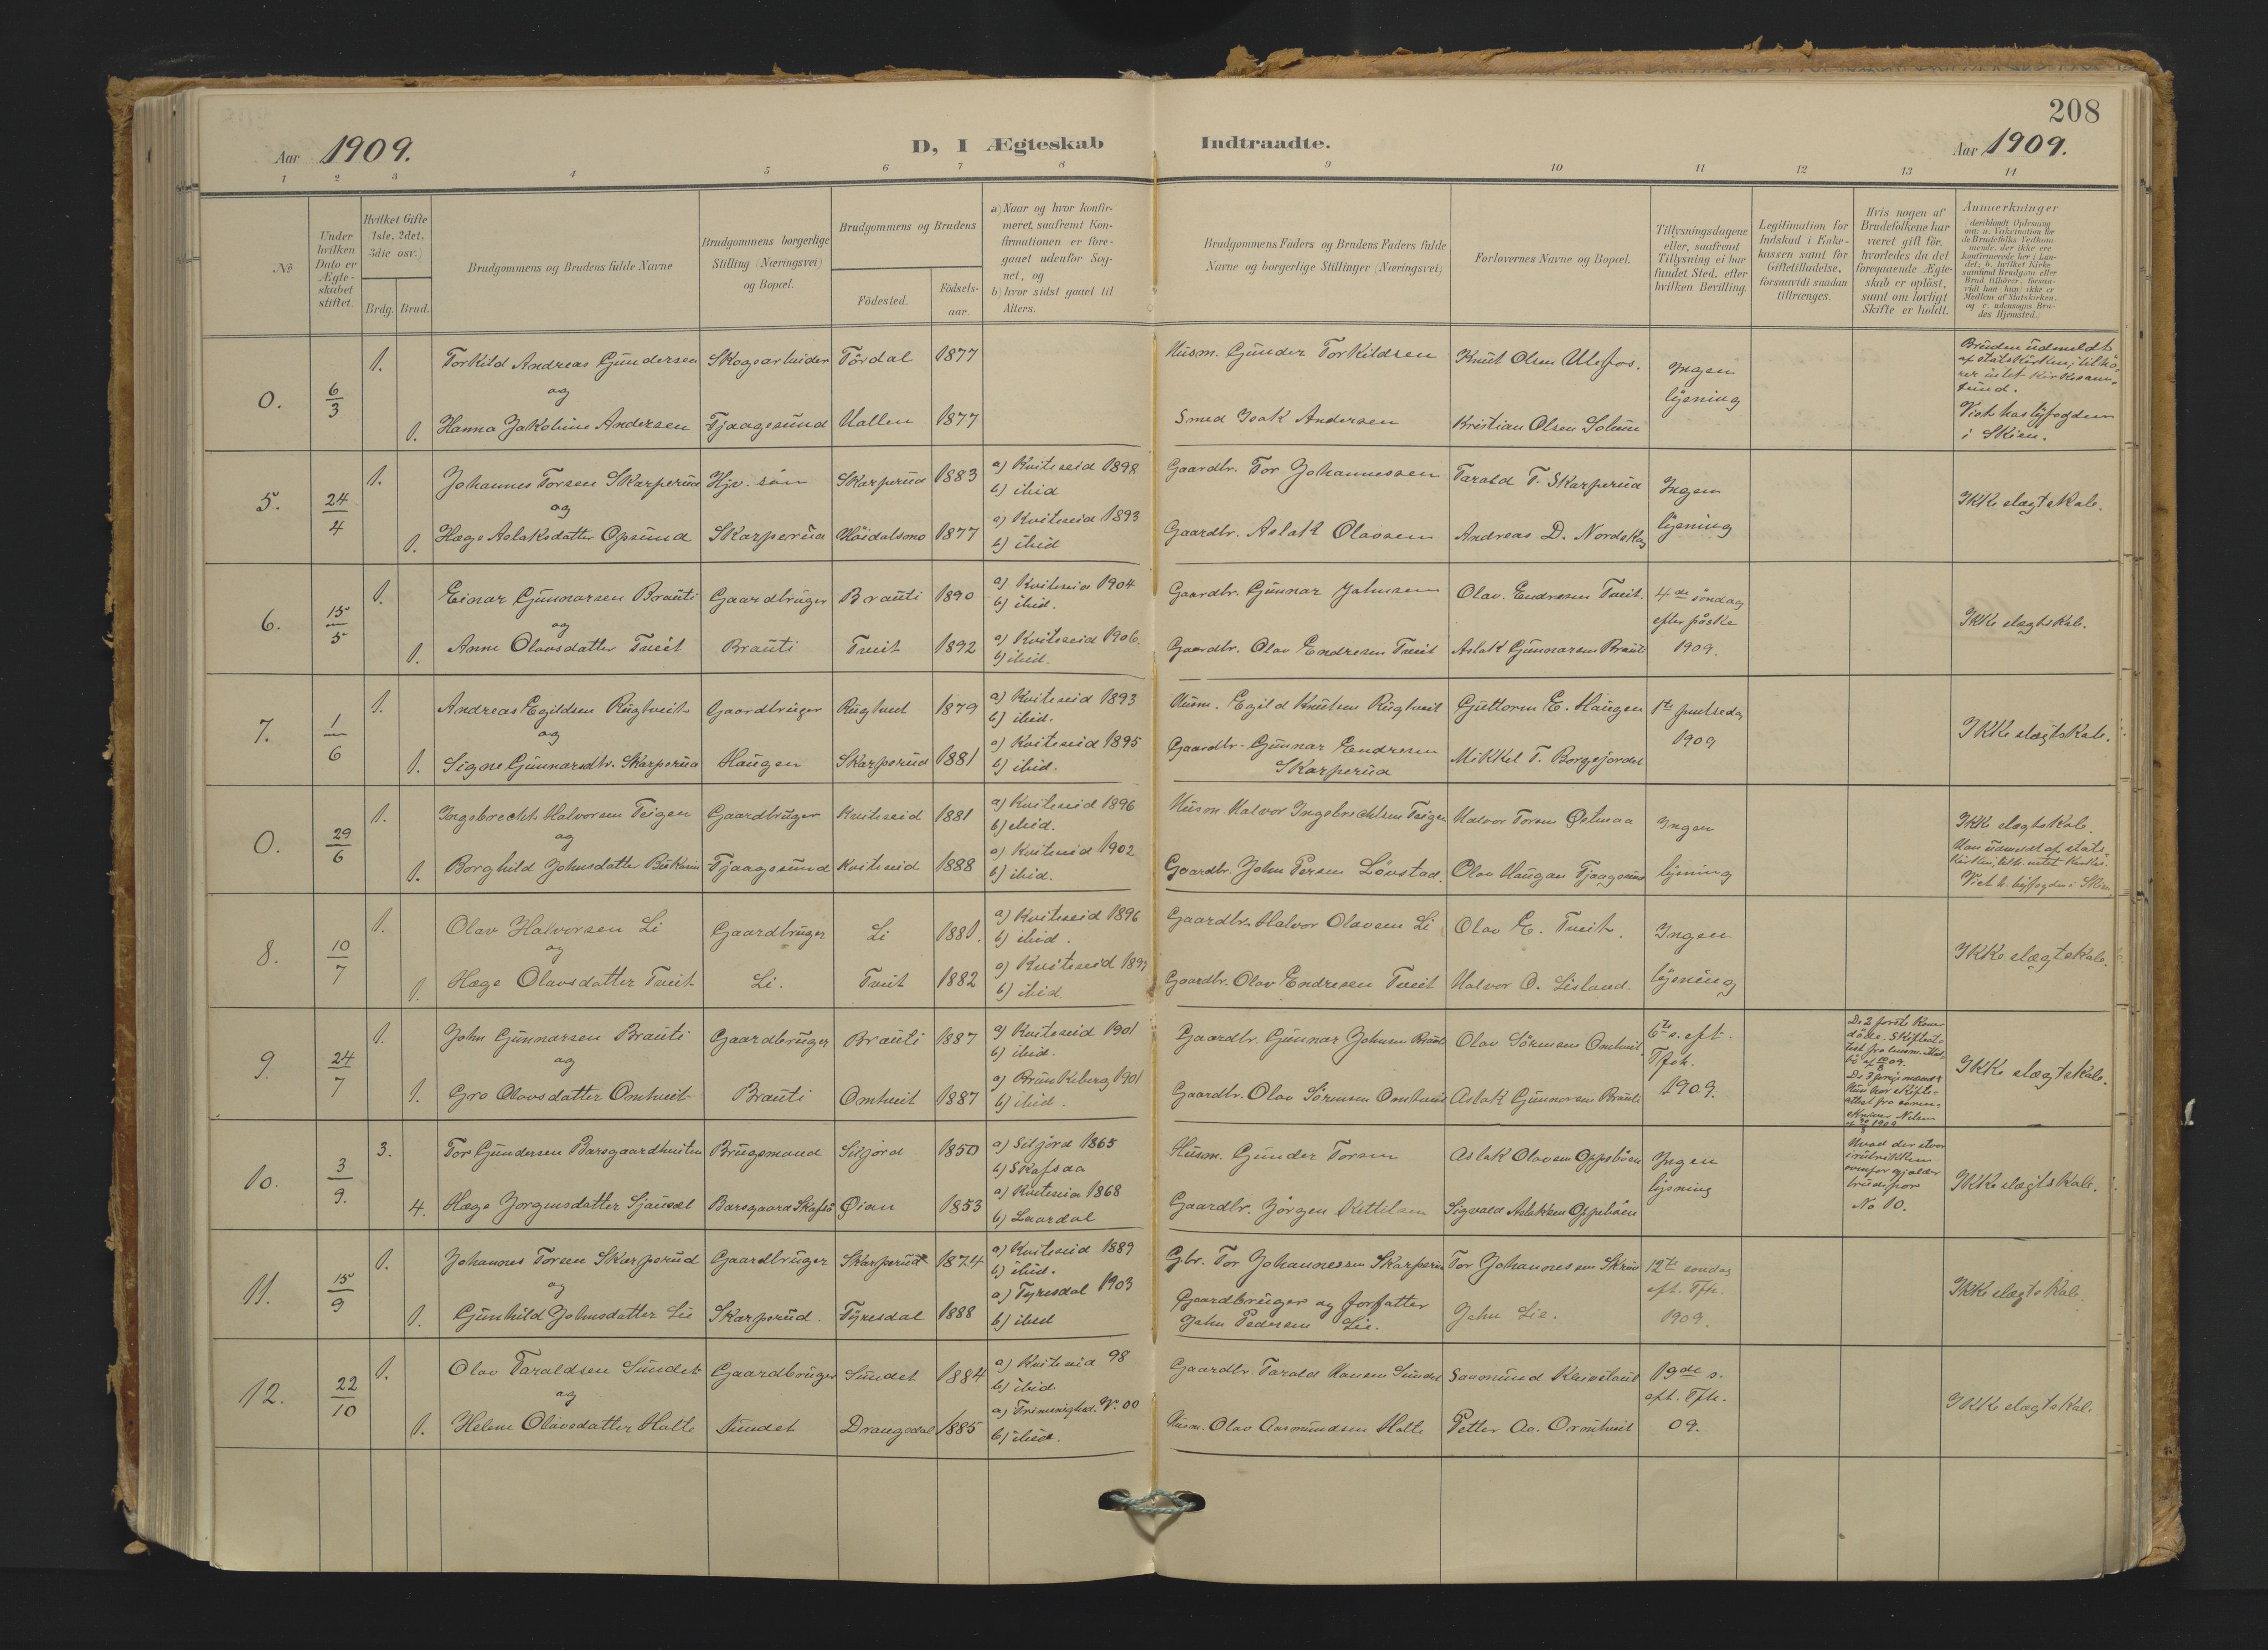 208
Aar 1909.
D, I Ægteskab Indtraadte.
Aar 1909.
1 2 3 4 5 6 7 8 9 10 11 12 13 14
No
Under hvilken Dato er Ægteskabet stiftet.
Hvilket Gifte (1ste, 2det, 3die osv.)
Brdg. Brud.
Brudgommens og Brudens fulde Navne
Brudgommens borgerlige Stilling (Næringsvei) og Bopæl.
Brudgommens og Brudens
Födested.
Födsels-aar.
a) Naar og hvor konfir-
meret, saafremt Kon-
firmationen er fore-
gaaet udenfor Sog-
net, og
b) hvor sidst gaaet til
Alters.
Brudgommens Faders og Brudens Faders fulde
Navne og borgerlige Stillinger (Næringsvei)
Forlovernes Navne og Bopæl.
Tillysningsdagene
eller, saafremt
Tillysning ei har
fundet Sted, efter
hvilken Bevilling.
Legitimation for
Indskud i Enke-
kassen samt for
Giftetilladelse,
forsaavidt saadan
tiltrænges.
Hvis nogen af
Brudefolkene har
været gift för,
hvorledes da det
foregaaende Ægte-
skab er oplöst,
samt om lovligt
Skifte er holdt.
Anmerkninger
(deriblandt Oplysning
om: a. Vakcination for
de Brudefolks Vedkom-
mende, der ikke ere
konfirmerede her i Lan-
det; b. hvilket Kirke-
samfund Brudgom eller
Brud tilhører, forsaa-
vidt han (hun) ikke er
Medlem af Statskirken,
og c. udensogns Bru-
des Hjemsted.)
0. 6/3 1. Torkild Andreas Gundersen Skogsarbeider Tördal 1877 Husm. Gunder Torkildsen Knut Olsen Ulefos. Ingen lysning
og
1. Hanna Jakobine Andersen Fjaagesund Hallen 1877 Smed Isak Andersen Kristian Olsen Solum
Bruden udmeldt
af statskirken; tilhö-
rer intet kirkesam-
fund.
Viet hos byfogden
i Skien.
5. 24/4 1. Johannes Torsen Skarperud Gjv. sön Skarperud 1883 a) Kviteseid 1898 b) ibid Gaardbr. Tor Johannessen Tarald T. Skarperud Ingen lysning Ikke slægtskab.
og
1. Hæge Aslaksdatter Opsund Skarperud Höidalsmo 1877 a) Kviteseid 1893 b) ibid Gaardbr. Aslak Olavsen Andreas D. Nordskog
6. 15/5 1. Einar Gunnarsen Brauti Gaardbruger Brauti 1890 a) Kviteseid 1904 b) ibid. Gaardbr. Gunnar Johnsen Olav Endresen Tveit. 4de söndag efter påske 1909. Ikke slægtskab.
og
1. Anne Olavsdatter Tveit Brauti Tveit 1892 a) Kviteseid 1906. b) ibid. Gaardbr. Olav Endresen Tveit Aslak Gunnarsen Brauti
7. 1/6 1. Andreas Egildsen Rugtveit Gaardbruger Rugtveit 1879 a) Kviteseid 1893 b) ibid. Husm. Egild Knutsen Rugtveit Guttorm E. Haugen 1ste pintsedag 1909 Ikke slægtskab.
og
1. Signe Gunnarsdtr. Skarperud Haugen Skarperud 1881 a) Kviteseid 1895 b) ibid. Gaardbr. Gunnar Endresen Skarperud Mikkel T. Borgejordet
0. 29/6 1. Ingebrecht Halvorsen Teigen Gaardbruger Kviteseid 1881 a) Kviteseid 1896 b) ibid. Husm. Halvor Ingebrechtsen Teigen Halvor Torsen Østmaa Ingen lysning
og
1. Borghild Johnsdatter Fjaagesund Kviteseid 1888 a) Kviteseid 1902 b) ibid. Gaardbr. John Persen Lövstad. Olav Haugan Fjaagesund
Ikke slægtskab.
Han udmeldt af stats
kirken, tilh. intet kirkes.
Viet h. byfogden i Skien.
8. 10/7 1. Olav Halvorsen Li Gaardbruger Li 1881. a) Kviteseid 1896 b) ibid. Gaardbr. Halvor Olavsen Li Olav E. Tveit. Ingen lysning Ikke slægtskab.
og
1. Hæge Olavsdatter Tveit Li. Tveit 1882 a) Kviteseid 1897 b) ibid. Gaardbr. Olav Endresen Tveit Halvor O. Lisland.
9. 24/7 1. John Gunnarsen Brauti Gaardbruger Brauti 1887 a) Kviteseid 1901 b) ibid. Gaardbr. Gunnar Johnsen Brauti Olav Sörensen Omtveit 6te s. eft. Tfh. 1909. Ikke slægtskab.
og
1. Gro Olavsdatter Omtveit Brauti Omtveit 1887 a) Brunkeberg 1901 b) ibid. Gaardbr. Olav Sörensen Omtveit Aslak Gunnarsen Brauti
10. 3/9. 3. Tor Gundersen Barsgaardkvisten Brugsmand Siljord 1850 a) Siljord 1865 b) Skafsaa Husm. Gunder Torsen Aslak Olavsen Oppeböen Ingen lysning Ikke slægtskab.
4. Hæge Jorgensdatter Barsgaard Skafså Øian 1853 a) Kviteseid 1868 b) Laardal Gaardbr. Jörgen Kittilsen Sigvald Aslaksen Oppeböen
Hvad der staar
i rubrikken
ovenfor gjælder
brudepar
No 10.
11. 15/9 1. Johannes Torsen Skarperud Gaardbruger Skarperud 1874 a) Kviteseid 1889 b) ibid. G.br. Tor Johannessen Skarperud Tor Johannessen 12te söndag eft. Tfh. 1909. Ikke slægtskab.
og
1. Gunhild Johnsdatter Lie Skarperud. Tyresdal 1888 a) Tyresdal 1903 b) ibid Gaardbruger og forfatter John Pedersen Lie. John Lie.
12. 22/10 1. Olav Taraldsen Sundet Gaardbruger Sundet 1884 a) Kviteseid 98 b) ibid Gaardbr. Tarald Hansen Sundet 19de s. eft. Tfh. 09. Ikke slægtskab.
og
1. Helene Olavsdatter Holte Sundet Drangedal 1885 b) ibid. Husm. Olav Aasmundsen Holte Petter Aa. Ormtveit